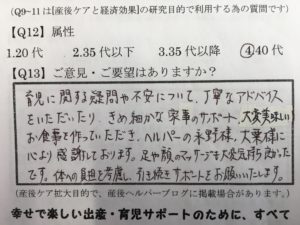 (Q9~11は[産後ケアと経済効果]の研究目的で利用する為の質問です)
【Q12】属性
1.20代 2.35代以下 3.35代以降 ④40代
【Q13】ご意見・ご要望はありますか?
育児に関する疑問や不安について、丁寧なアドバイス
をいただいたり、きめ細かな家事のサポート、大変美味しい
お食事を作っていただき、ヘルパーの永野様、大葉様に
心より感謝しております。足や顔のマッサージも大変気持ち良かった
です。体への負担を考慮し、引き続きサポートをお願いいたします。
(産後ケア拡大目的で、産後ヘルパーブログに掲載場合があります。)
幸せで楽しい出産・育児サポートのために、すべて